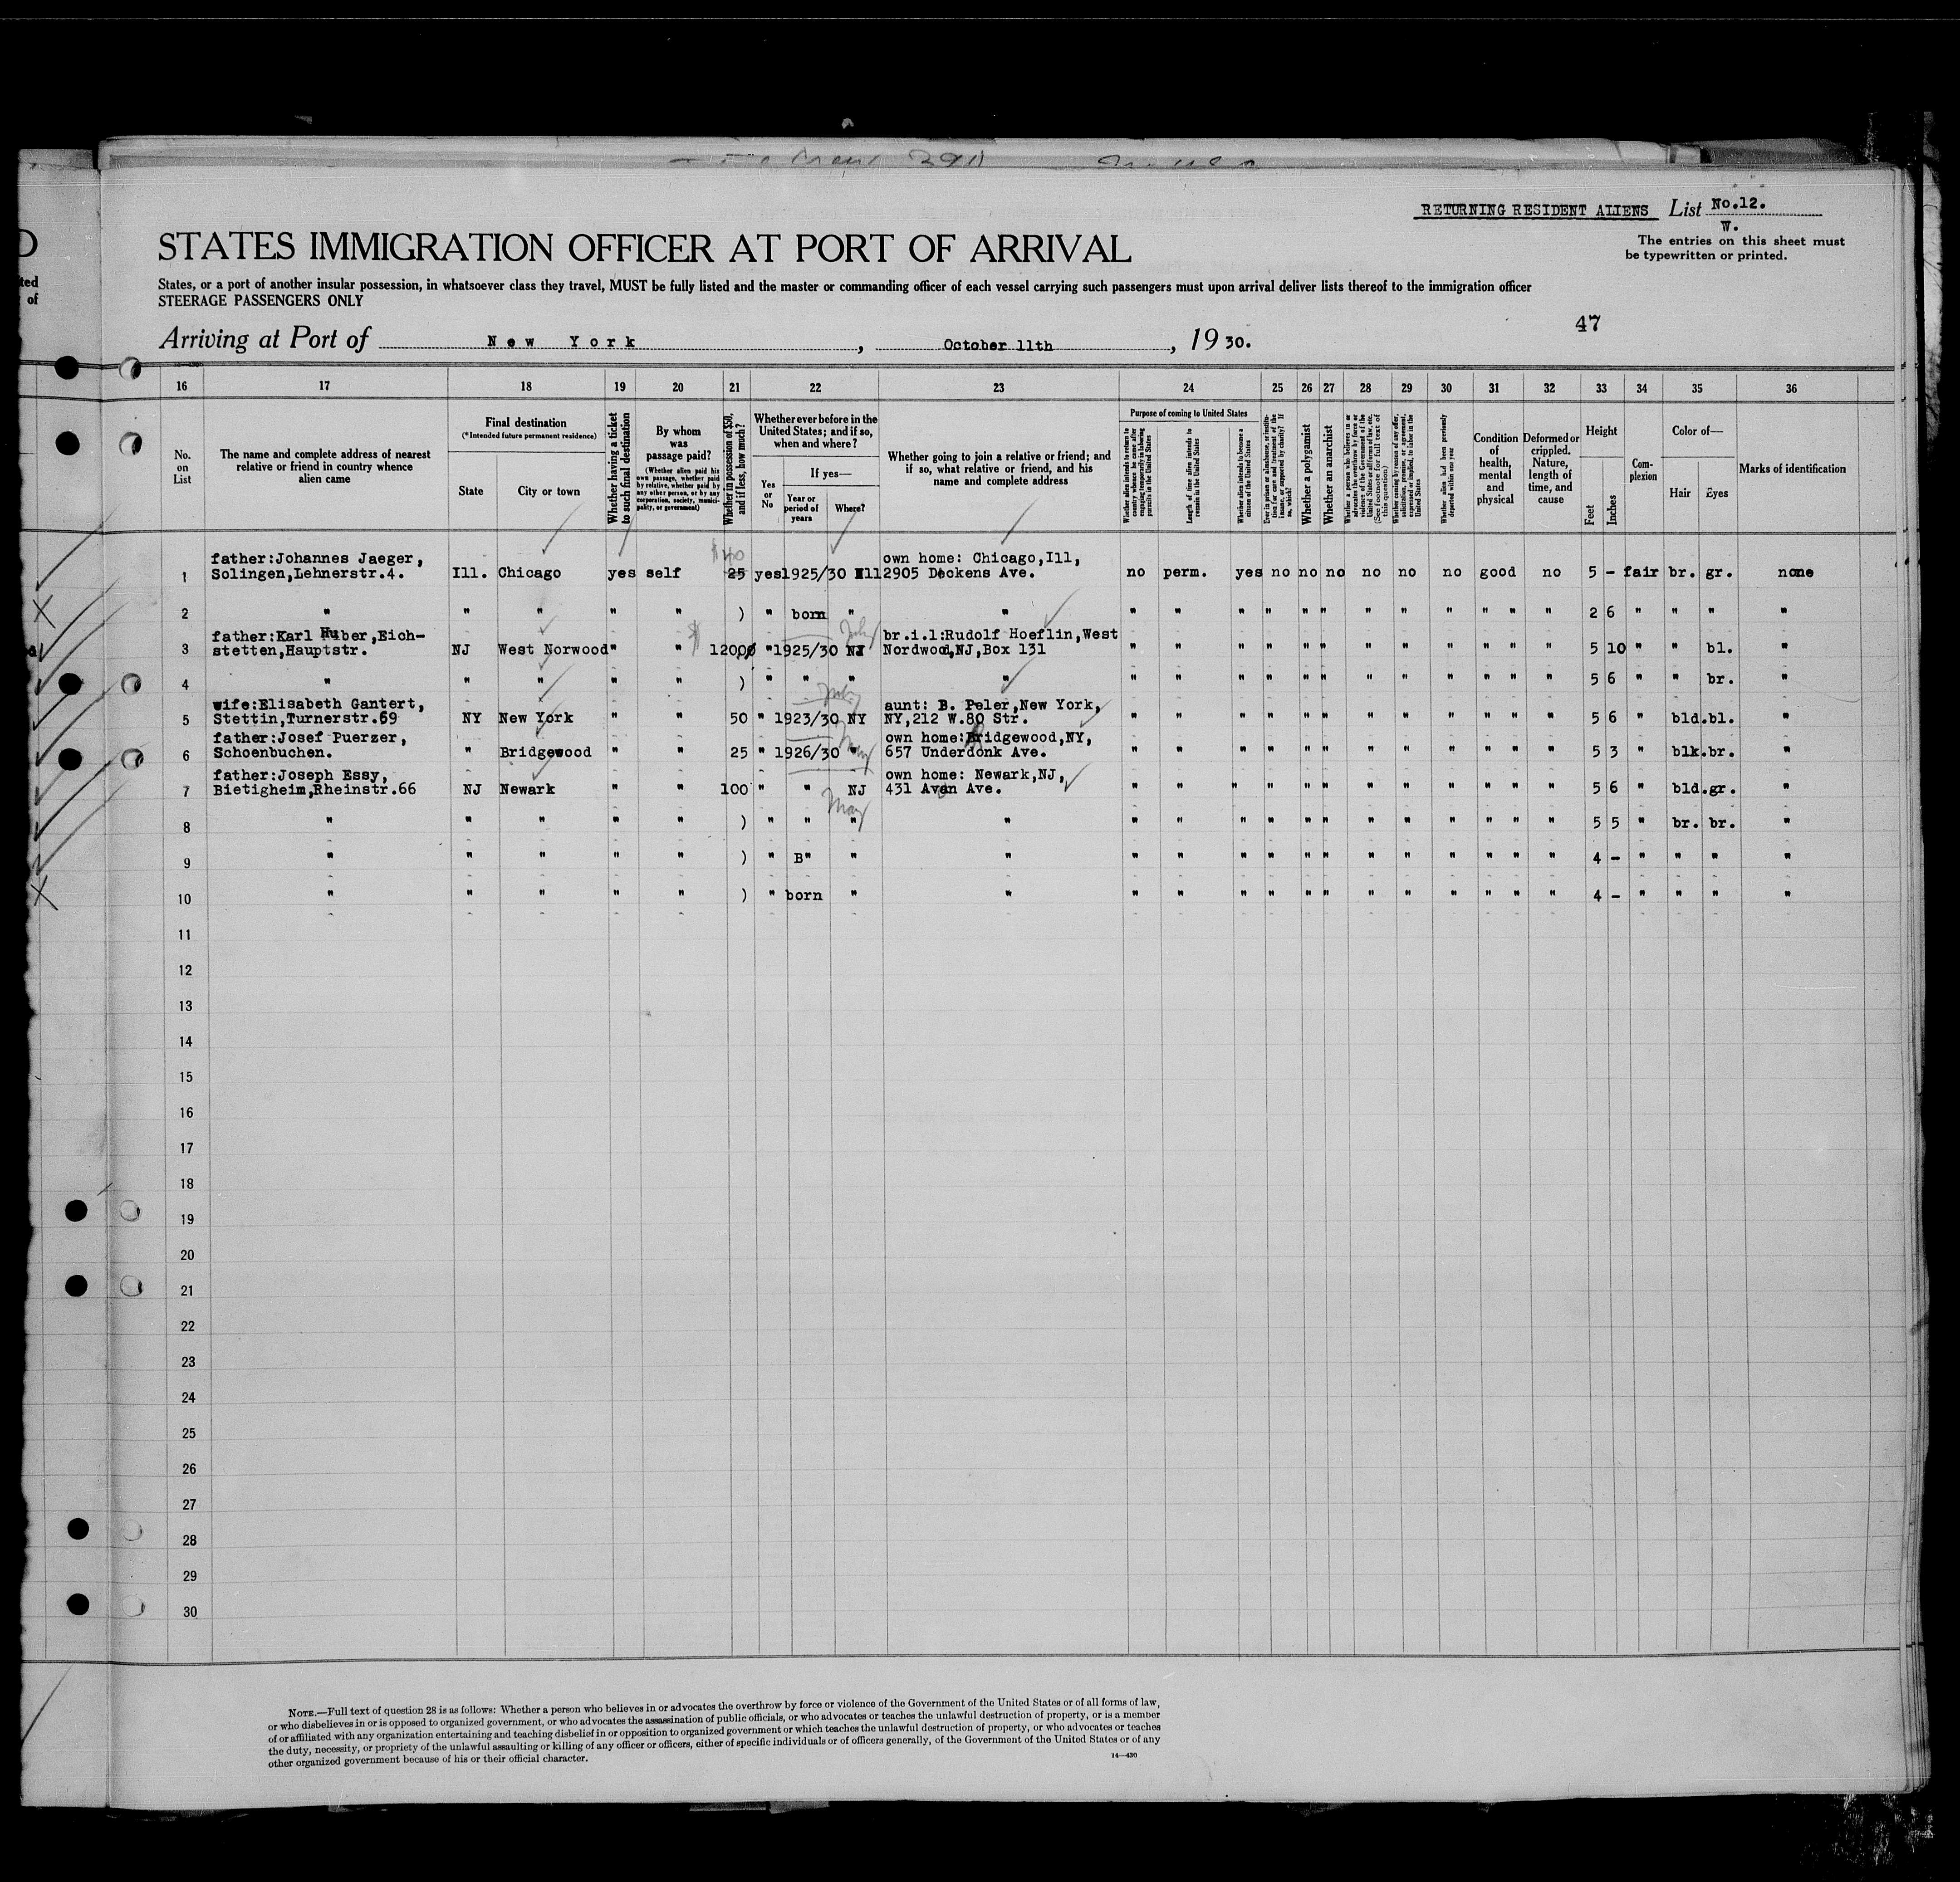 RETURNING RESIDENT ALIENS List No.12.
W.
STATES IMMIGRATION OFFICER AT PORT OF ARRIVAL
The entries on this sheet must
be typewritten or printed.
States, or a port of another insular possession, in whatsoever class they travel, MUST be fully listed and the master or commanding officer of each vessel carrying such passengers must upon arrival deliver lists thereof to the immigration officer
STEERAGE PASSENGERS ONLY
47
Arriving at Port of New York, October 11th, 19 30.
16 17 18 19 20 21 22 23 24 25 26 27 28 29 30 31 32 33 34 35 36
No.
on
List
The name and complete address of nearest
relative or friend in country whence
alien came
Final destination
(*Intended future permanent residence)
State
City or town
Whether having a ticket
to such final destination
By whom
was
passage paid?
(Whether alien paid his
own passage, whether paid
by relative, whether paid by
any other person, or by any
corporation, society, munici-
pality, or government)
Whether in possession of $50,
and if less, how much?
Whether ever before in the
United States; and if so,
when and where?
Yes
or
No
If yes—
Year or
period of
years
Where?
Whether going to join a relative or friend; and
if so, what relative or friend, and his
name and complete address
Purpose of coming to United States
Length of time alien intends to
remain in the United States
Whether alien intends to become a
citizen of the United States
Whether a polygamist
Whether an anarchist
Whether alien had been previously
deported within one year
Condition
of
health,
mental
and
physical
Deformed or
crippled.
Nature,
length of
time, and
cause
Height
Feet
Inches
Com-
plexion
Color of—
Hair
Eyes
Marks of identification
father:Johannes Jaeger, $40 own home: Chicago,Ill,
1 Solingen,Lehnerstr.4. Ill. Chicago yes self 25 yes 1925/30 Ill 2905 Dickens Ave. no perm. yes no no no no no no good no 5 - fair br. gr. none
2 " " " " " ) " born " " " " " " " " " " " " " " 2 6 " " " "
father:Karl Huber,Eich- br.i.l:Rudolf Hoeflin,West
3 stetten,Hauptstr. NJ West Norwood " " 1200 " 1925/30 NJ Nordwood,NJ,Box 131 " " " " " " " " " " " " 5 10 " " bl. "
4 " " " " " ) " " " " " " " " " " " " " " " " 5 6 " " br. "
wife:Elisabeth Gantert, aunt: B. Peler,New York,
5 Stettin,Turnerstr.69 NY New York " " 50 " 1923/30 NY NY,212 W.80 Str. " " " " " " " " " " " " 5 6 " bld. bl. "
father:Josef Puerzer, own home:Bridgewood,NY,
6 Schoenbuchen. " Bridgewood " " 25 " 1926/30 " 657 Underdonk Ave. " " " " " " " " " " " " 5 3 " blk. br. "
father:Joseph Essy, own home: Newark,NJ,
7 Bietigheim,Rheinstr.66 NJ Newark " " 100 " " NJ 431 Avon Ave. " " " " " " " " " " " " 5 6 " bld. gr. "
May
8 " " " " " ) " " " " " " " " " " " " " " " " 5 5 " br. br. "
9 " " " " " ) " B" " " " " " " " " " " " " " " 4 - " " " "
10 " " " " " ) " born " " " " " " " " " " " " " " 4 - " " " "
11
12
13
14
15
16
17
18
19
20
21
22
23
24
25
26
27
28
29
30
NOTE.—Full text of question 28 is as follows: Whether a person who believes in or advocates the overthrow by force or violence of the Government of the United States or of all forms of law,
or who disbelieves in or is opposed to organized government, or who advocates the assassination of public officials, or who advocates or teaches the unlawful destruction of property, or is a member
of or affiliated with any organization entertaining and teaching disbelief in or opposition to organized government or which teaches the unlawful destruction of property, or who advocates or teaches
the duty, necessity, or propriety of the unlawful assaulting or killing of any officer or officers, either of specific individuals or of officers generally, of the Government of the United States or of any
other organized government because of his or their official character.
14—430